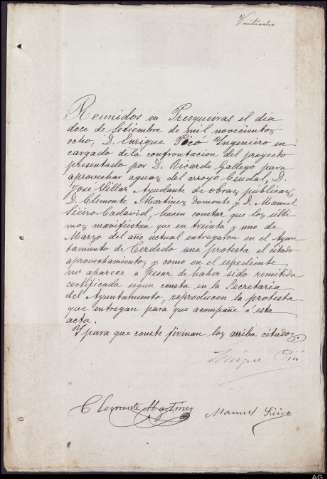 Reunidos en Pesqueiras el dia
doce de Setiembre de mil novecientos
ocho, D. Enrique Picó Ingeniero en
cargado de la confrontacion del proyecto
presentado por D. Ricardo Gallego para
aprovechar aguas del arroyo D.
José Sillar Ayudante de obras publicas,
D. Clemente Martinez Domonte y D. Manuel
Sieiro Cadavid, hacen constar que los ulti-
mos manifiestan que en treinta y uno de
Marzo del año actual entregaron en el Ayun
tamiento de Cerdedo una protesta al citado
aprovechamiento, y como en el expediente
no aparece a pesar de haber sido remitida
certificada segun consta en la Secretaria
del Ayuntamiento, reproducen la protesta
que entregan para que acompañe a esta
acta.
Y para que conste firman los arriba citados
Enrique Picó
Clemente Martinez
Manuel Sieiro